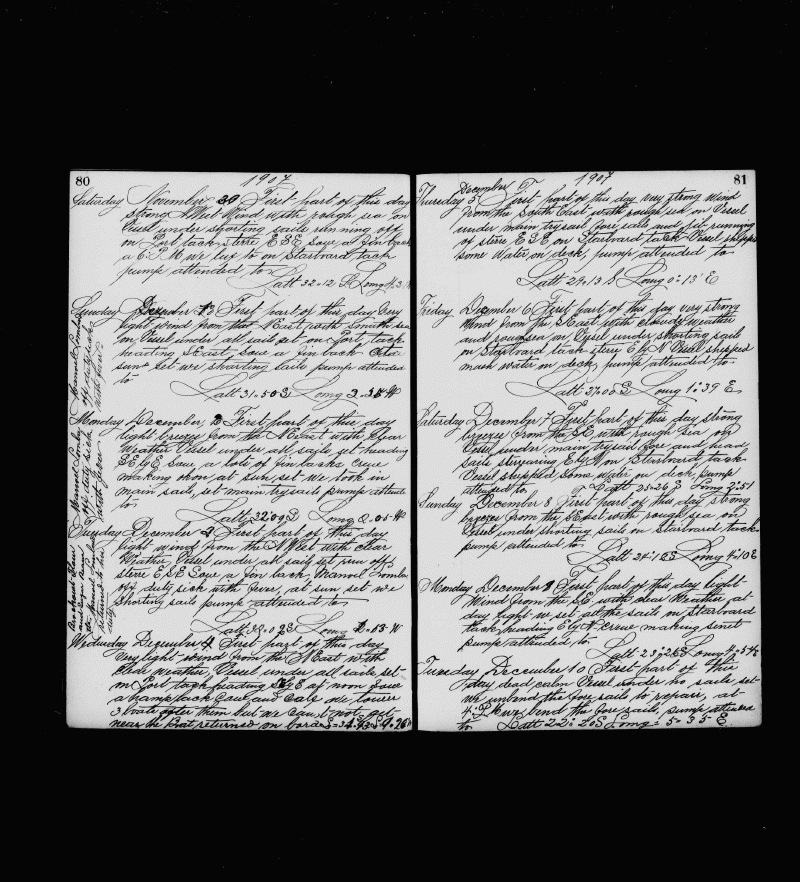 80
1907
Saturday November 30 First part of this day
strong West Wind with rough sea on
Vessel under shorting sails running off
on Port tack stere ESE Saw a fin back
a 6 P M we luf to on Starbard tack
pump attended to
Latt 32-12 S Long
Sunday December 1 First part of this day Very
light wind from the N East with smouth sea
on Vessel under all sails set on Port tack
heading S East Saw a fin back at
sun set we shorting sails pump attended
to
Latt 31-50 S Long W
Monday December 2 First part of this day
light breeze from the N East with Clear
Weather Vessel under all sails set heading
SE by E saw a lots of fin backs Crew
making at sun set we took in
main sails, set main trysails pump attended
to
Latt 32-09 S Long 2-05 W
Tuesday December 3 First part of this day
light wind from the N West with Clear
Weather, Vessel under all sail set run off
stere ESE Saw a fin back Manoel
off duty sick with fever, at sun set we
shorting sails pump attended to
Latt S Long W
Wednesday December 4 First part of this day
very light wind from the N East with
Clear weather, Vessel under all sails set
on Port tack heading at noon Saw
a hump back Cow and Calf we lower
3 boats after them but we can not get
near the boat returned on board
Manoel
off duty sick
with fever
returned to his
duty
81
1907
December
Thursday 5 First part of this day very strong wind
from the South East with rough sea on Vessel
under main trysail fore sail and jib running
of stere ESE on Starboard tack Vessel shipped
some Water on deck, pump attended to
Latt 29-13 S Long 0-13 E
Friday December 6 First part of this day very strong
Wind from the S East with cloudy weather
and rough sea on Vessel under shorting sails
on Starboard tack stere E by N Vessel shipped
mush water on deck, pump attended to
Latt 27-00 S Long 1-39 E
Saturday December 7 First part of this day strong
breeze from the SE with rough sea on
Vessel under main trysail fore and head
sails E by N on Starboard tack
Vessel shipped some water on deck pump
attended to Latt 25-26 S Long 2-51
Sunday December 8 First part of this day strong
breeze from the S East with rough sea on
Vessel under shorting sails on Starboard tack
pump attended to
Latt 24-12 S Long 4-10 E
Monday December 9 First part of this day light
Wind from the SE with clear Weather at
day light w set all the sails on Starboard
tack heading E by N crew making sinet
pump attended to
Latt 23-26 S Long
Tuesday December 10 First part of this
day dead calm Vessel under no sails set
we unbend the fore sails to repair, at
4 P M we bend the fore sails, pump attended
to Latt 22-20 S Long 5-35 E